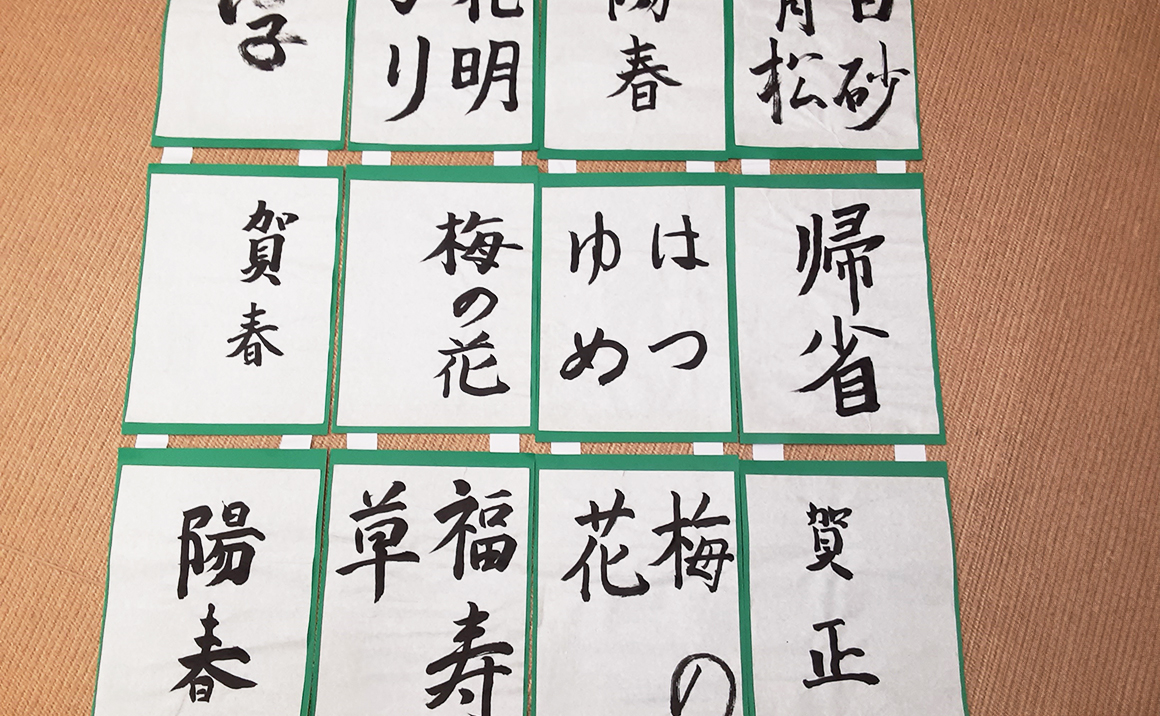 白砂
青松
陽春
花明
り
子
帰省
はつ
ゆめ
梅の花
賀春
賀正
梅の
花
福寿
草
陽春